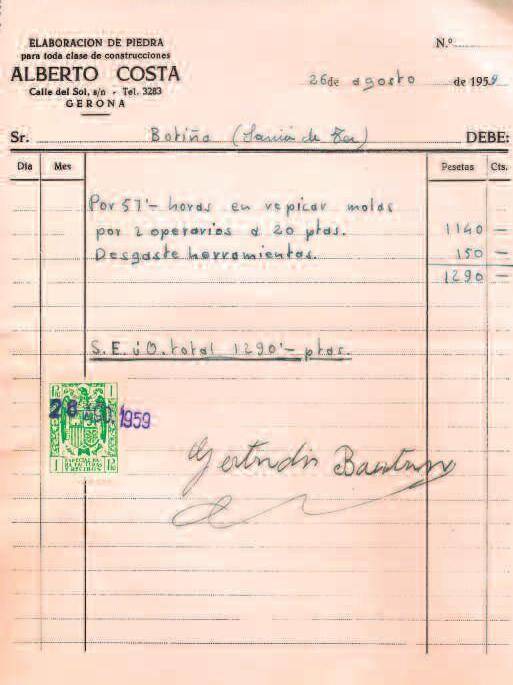 ELABORACION DE PIEDRA
para toda clase de construcciones
ALBERTO COSTA
Calle del Sol, s/n - Tel. 3283
GERONA
N.º
26 de agosto de 1959
Sr. Botiña (Sarriá de Ter) DEBE:
Dia Mes Pesetas Cts.
Por 57'- horas en repicar molas
por 2 operarios a 20 ptas. 1140 —
Desgaste herramientas. 150 —
1290 —
S. E. ú O. total 1290'- ptas.
1 PTA 1 PTA
26 AGO. 1959
ESPECIAL PA
RA FACTURAS
Y RECIBOS
Gertrudis